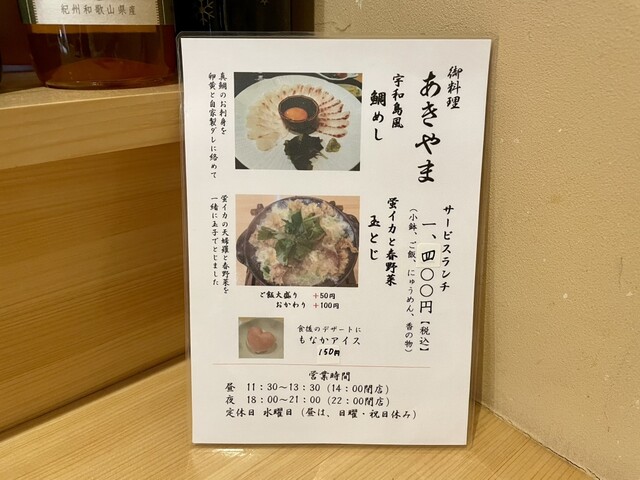 紀州和歌山県産
御料理
あきやま
サービスランチ
一、四〇〇円【税込】
(小鉢、ご飯、にゅうめん、香の物)
宇和島風
鯛めし
真鯛のお刺身を
卵黄と自家製ダレに絡めて
蛍イカと春野菜
玉とじ
蛍イカの天婦羅と春野菜を
一緒に玉子でとじました
ご飯大盛り +50円
おかわり +100円
食後のデザートに
もなかアイス
150円
営業時間
昼 11:30~13:30(14:00閉店)
夜 18:00~21:00(22:00閉店)
定休日 水曜日(昼は、日曜・祝日休み)